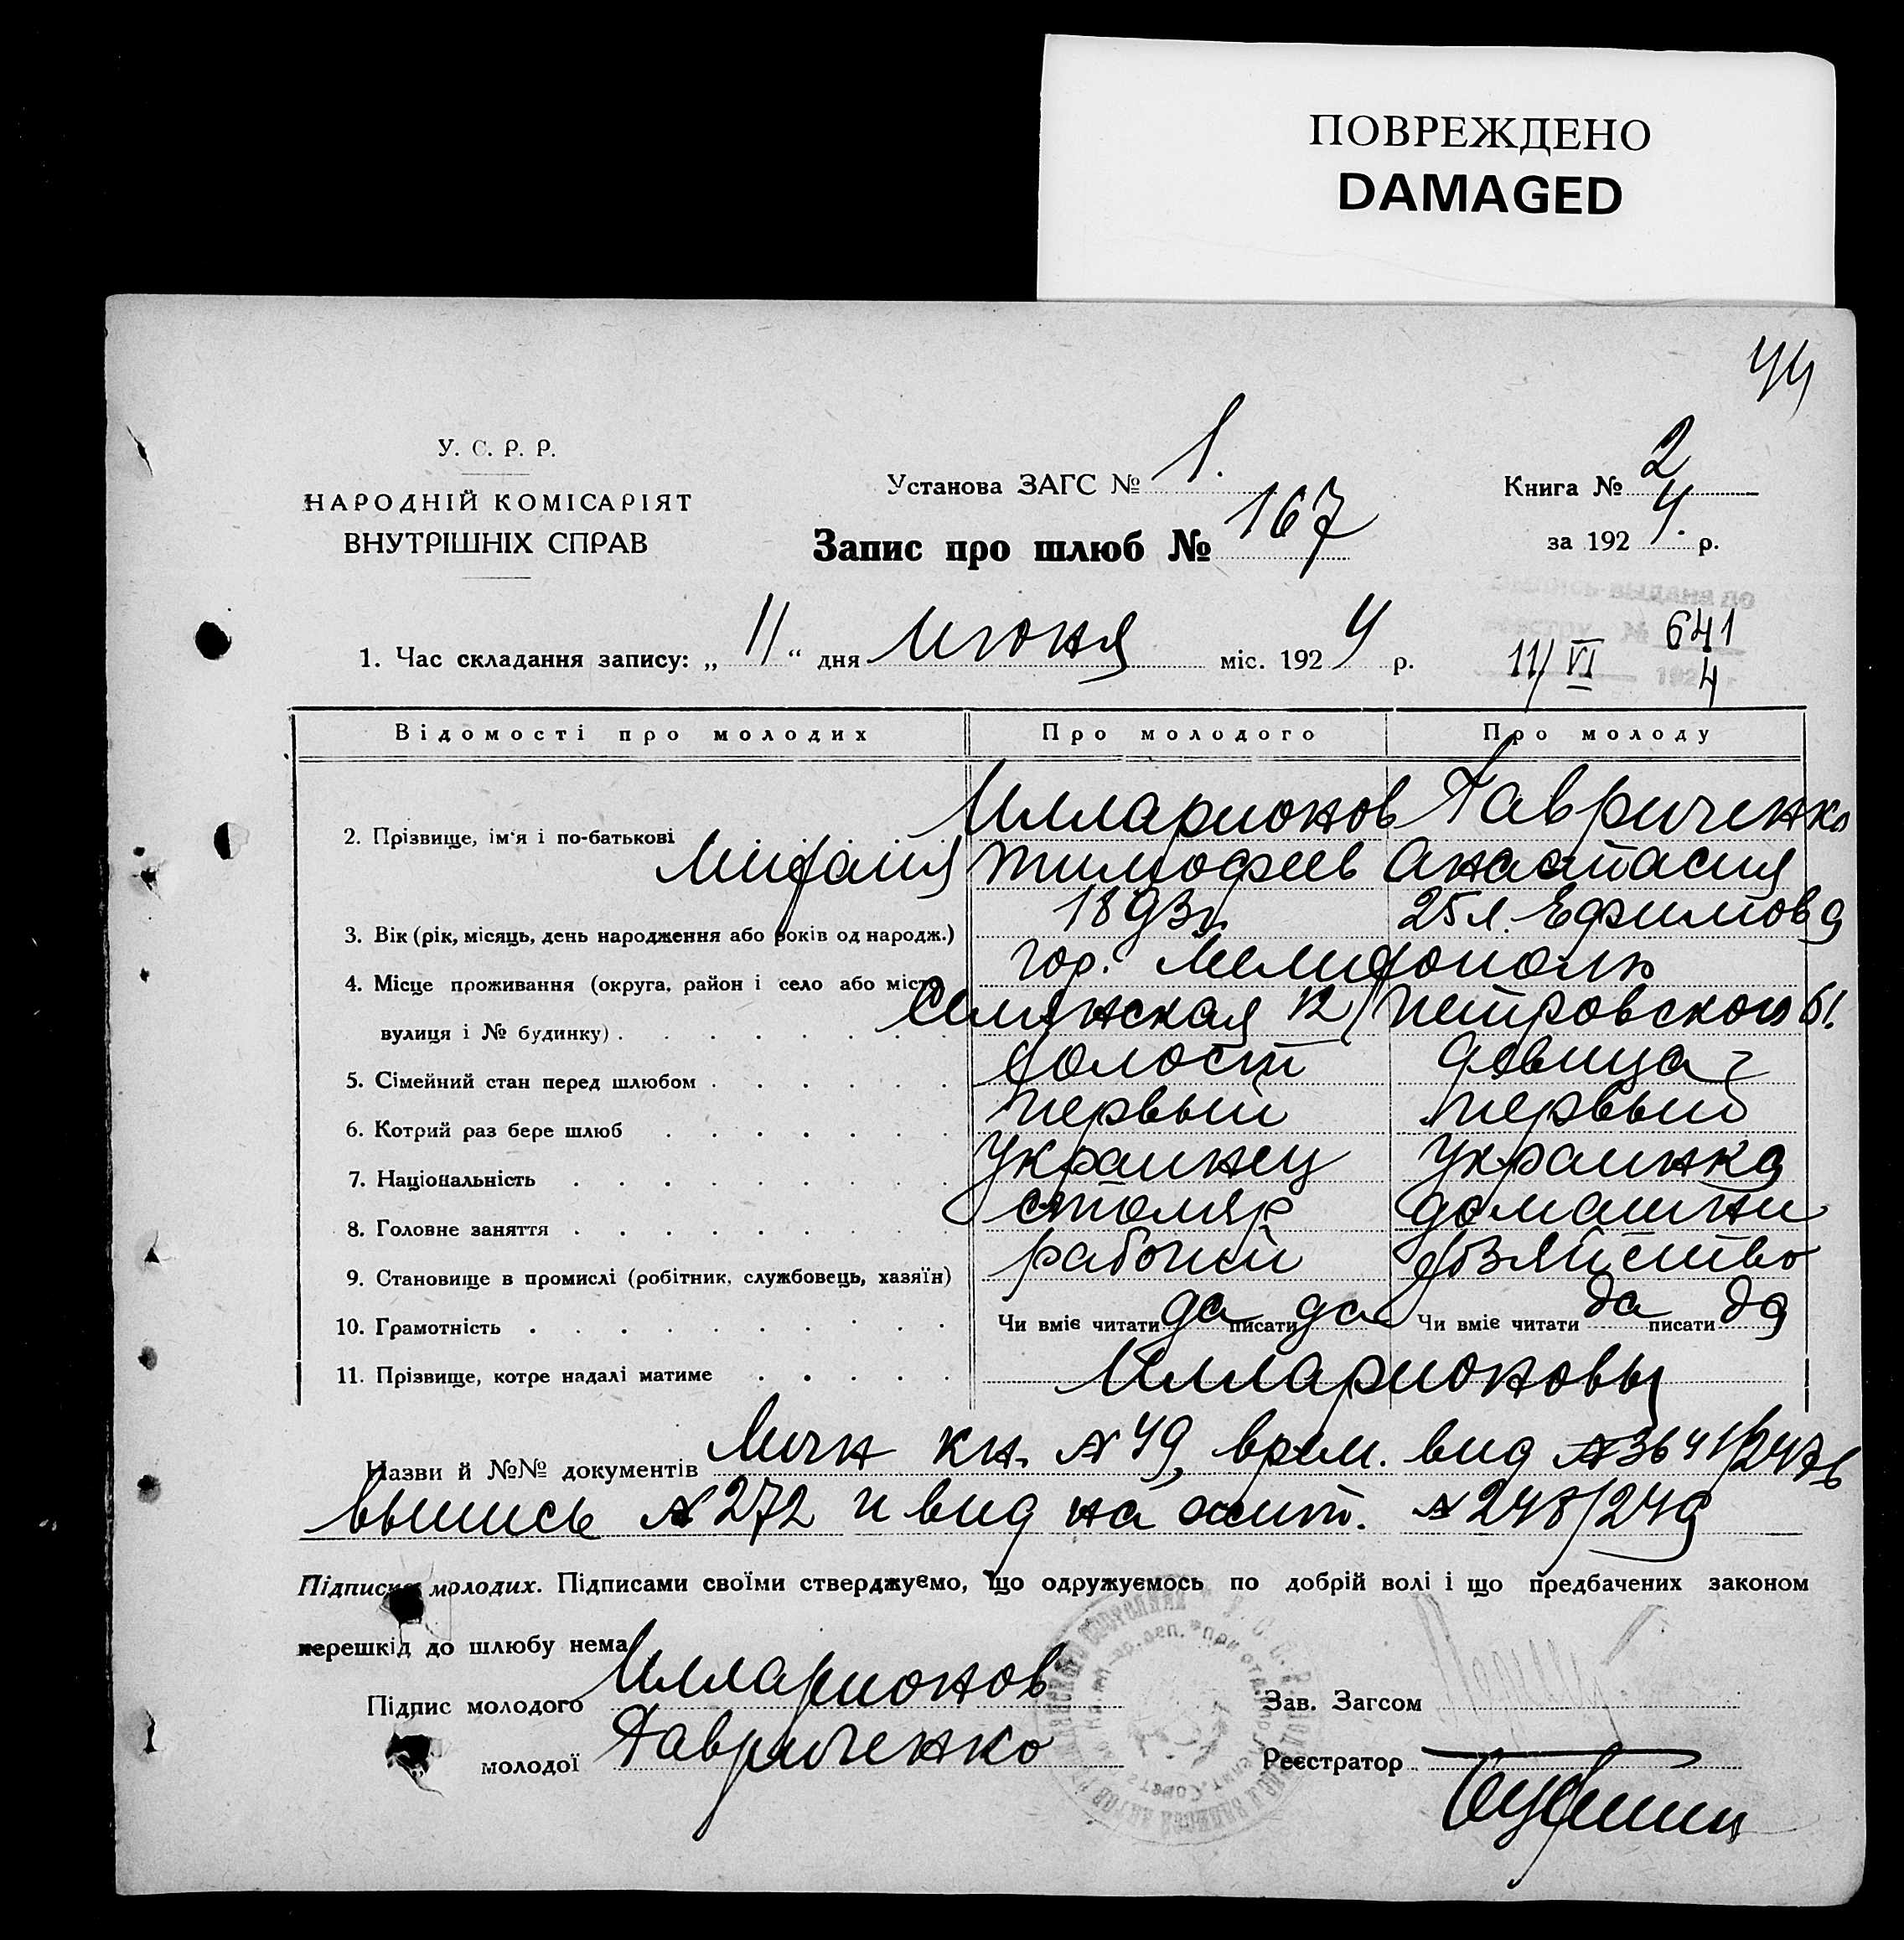 ПОВРЕЖДЕНО
DAMAGED
44
У. С. Р. Р.
НАРОДНІЙ КОМІСАРІЯТ
ВНУТРІШНІХ СПРАВ
Установа ЗАГС № 1.
Запис про шлюб № 167
Книга № 2
за 192 4. р.
1. Час складання запису: „ 11 “ дня Июня міс. 192 4 р.
выдана по
№ 641
11/VI 192 4
Відомості про молодих Про молодого Про молоду
Илларионов Гавриченко
2. Прізвище, ім'я і по-батькові Михаил Тимофеев Анастасия
3. Вік (рік, місяць, день народження або років од народж.) 1893г. 25 л. Ефимова
4. Місце проживання (округа, район і село або місто, гор. Мелитополь
вулиця і № будинку) 12/ Петровского 61.
5. Сімейний стан перед шлюбом холост девица
6. Котрий раз бере шлюб первый первый
7. Національність Украинец Украинка
8. Головне заняття столяр домашн
9. Становище в промислі (робітник, службовець, хазяїн) рабочий хозяйство
10. Грамотність Чи вміє читати да писати да Чи вміє читати да писати да
11. Прізвище, котре надалі матиме Илларионовы
Назви й №№ документів Личн кн. № 49, врем. вид
выпись № 272 и вид на жит. № 248/249
Підписи молодих. Підписами своїми стверджуємо, що одружуємось по добрій волі і що предбачених законом
перешкід до шлюбу нема
Підпис молодого Илларионов
Зав. Загсом
„ молодої Гавриченко
Реєстратор